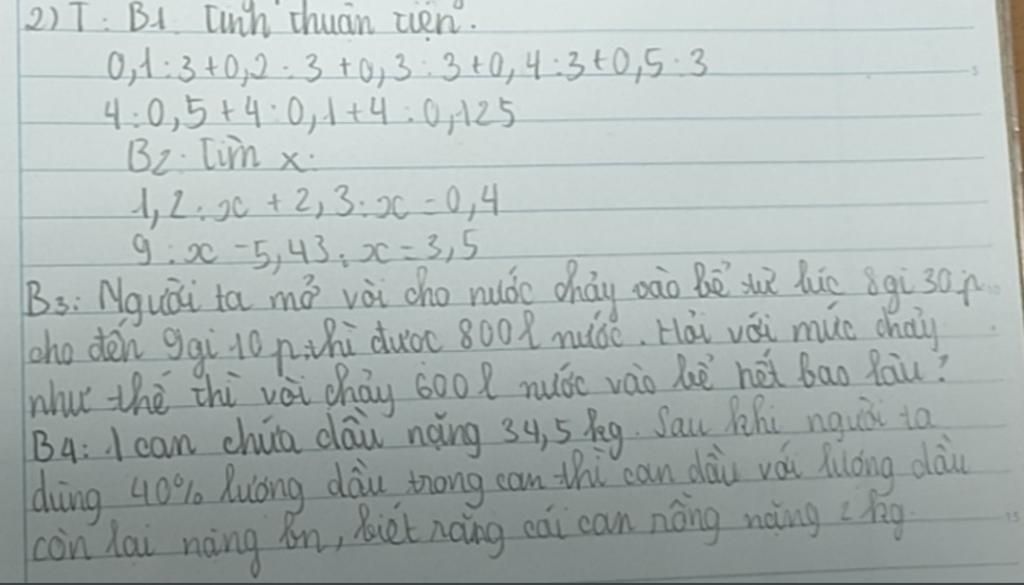 2) T: B1. Tính thuận tiện.
0,1:3+0,2:3+0,3:3+0,4:3+0,5:3
4:0,5+4:0,1+4:0,125
B2: Tìm x:
1,2:x + 2,3:x = 0,4
9:x - 5,43:x = 3,5
B3: Người ta mở vòi cho nước chảy vào bể từ lúc 8gi 30p
cho đến 9gi 10p thì được 800l nước. Hỏi với mức chảy
như thế thì vòi chảy 600l nước vào bể hết bao lâu?
B4: 1 can chứa dầu nặng 34,5 kg. Sau khi người ta
dùng 40% lượng dầu trong can thì can dầu với lượng dầu
còn lại nặng bn, biết rằng cái can rỗng nặng 2 kg.